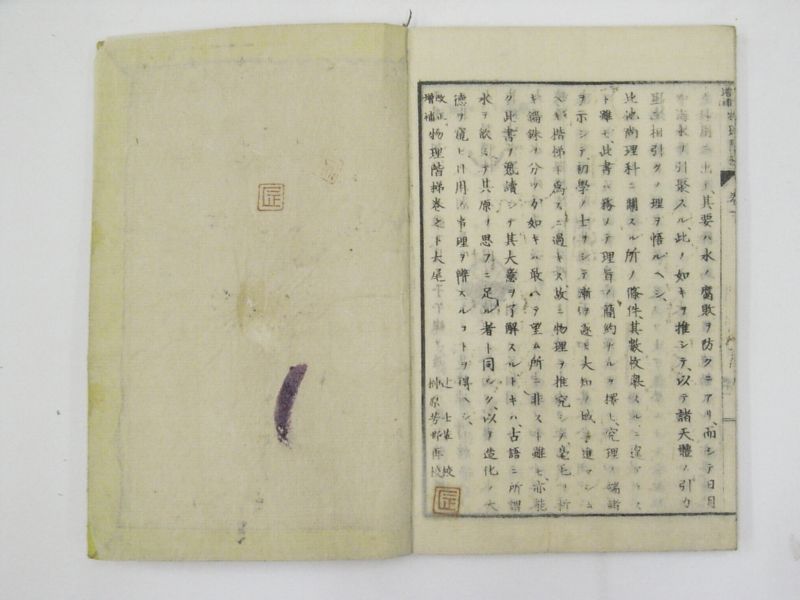 其要ハ水ノ腐敗ヲ防クニアリ、而シテ日月
海水ヲ引聚スル、此ノ如キヲ推シテ、以テ諸天體ノ引力
相引クノ理ヲ悟ルヘシ、
此他尚理科ニ關スル所ノ條件、其數枚擧スルニ遑アラス
ト雖モ此書ハ務メテ理旨ノ簡約ナルヲ擇ヒ究理ノ端諸
ヲ示シテ、初學ノ士ヲシテ漸ヲ逐ヒ大知ノ域ニ進マシム
ヘキ楷梯ト爲スニ過キス、故ニ物理ヲ推究シテ毫毛ヲ析
キ錙銖ヲ分ツカ如キハ敢ヘテ望ム所ニ非スト雖モ亦能
ク此書ヲ熟讀シテ其大意ヲ了解スルトキハ、古語ニ所謂
水ヲ飲ミテ其原ヲ思フニ足ル者ト同シク、以テ造化ノ大
德ヲ窺ヒ日用ノ事理ヲ辨スルコトヲ得ヘシ、
改正增補物理階梯卷之下大尾
榊原芳野 校